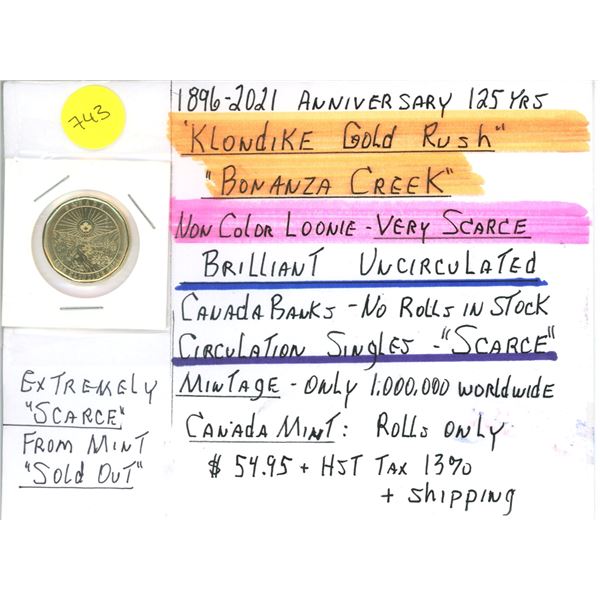 743
1896-2021 ANNIVERSARY 125 YRS
"KLONDIKE GOLD RUSH"
"BONANZA CREEK"
NON COLOR LOONIE - VERY SCARCE
BRILLIANT UNCIRCULATED
CANADA BANKS - NO ROLLS IN STOCK
CIRCULATION SINGLES - "SCARCE"
MINTAGE - ONLY 1,000,000 WORLDWIDE
CANADA MINT: ROLLS ONLY
$ 54.95 + HST TAX 13%
+ SHIPPING
EXTREMELY
"SCARCE"
FROM MINT
"SOLD OUT"